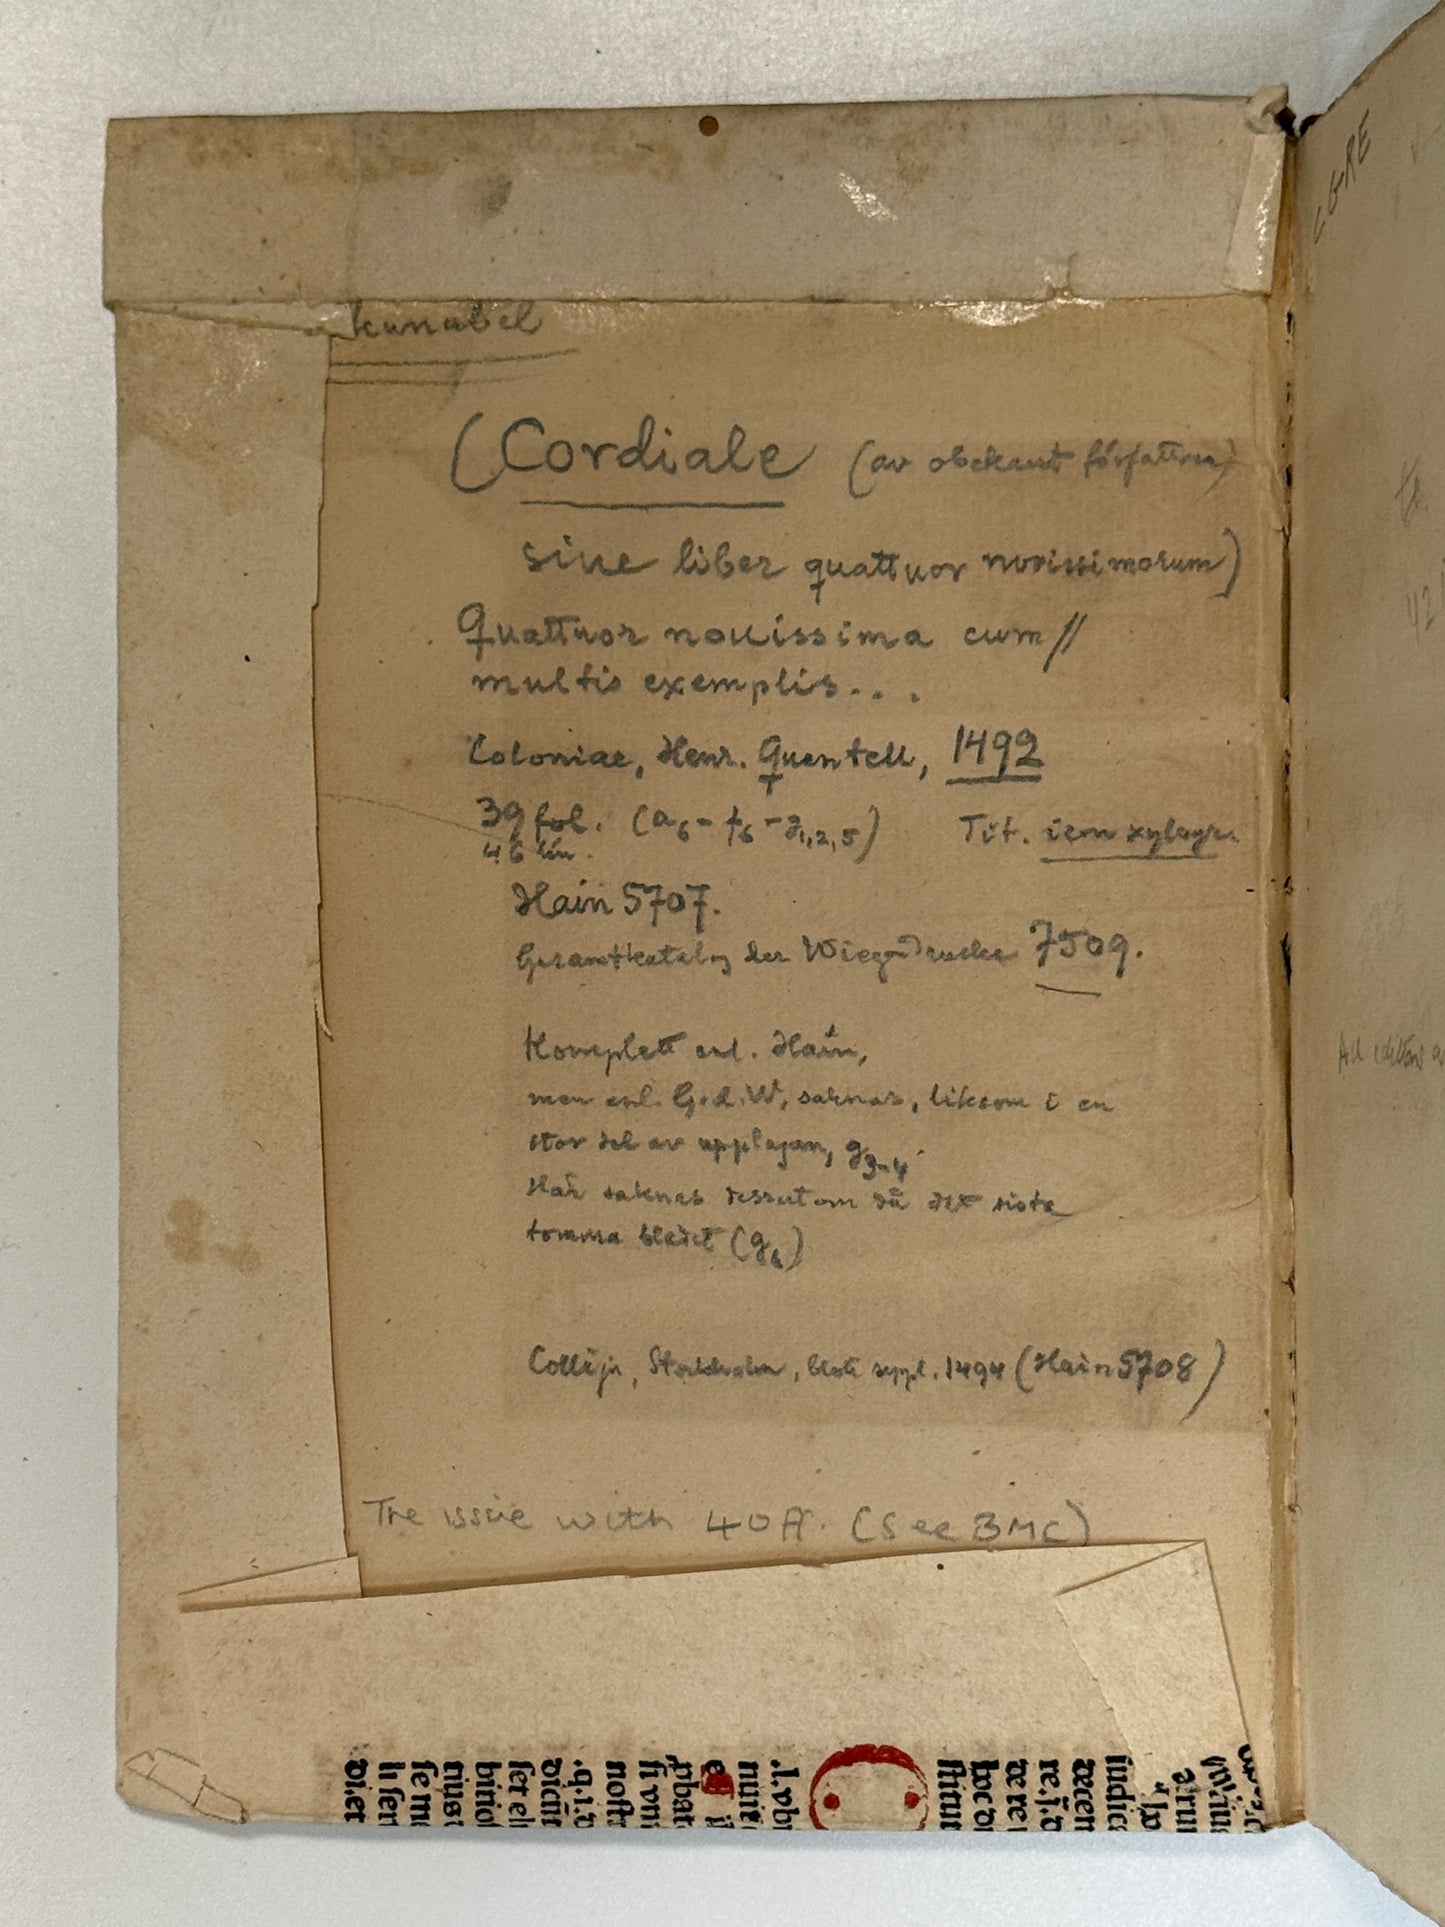 kunabel
(Cordiale (av obekant författare)
siue liber quattuor novissimorum)
Quattuor nouissima cum//
multis exemplis...
Coloniae, Henr. Quentell, 1492
39 fol. (a6 - f6 - g1,2,5) Tit. iem xylogr.
46 lin.
Hain 5707.
Gesamtkatalog der Wiegendrucke 7509.
Komplett enl. Hain,
men enl. G.d.W, saknas, liksom i en
stor del av upplagan, g3-4.
Här saknas dessutom då det sista
tomma bladet (g6)
Collijn, Stockholm, blott uppl. 1494 (Hain 5708)
The issue with 40 ff. (See BMC)
CGRE
42
All editions